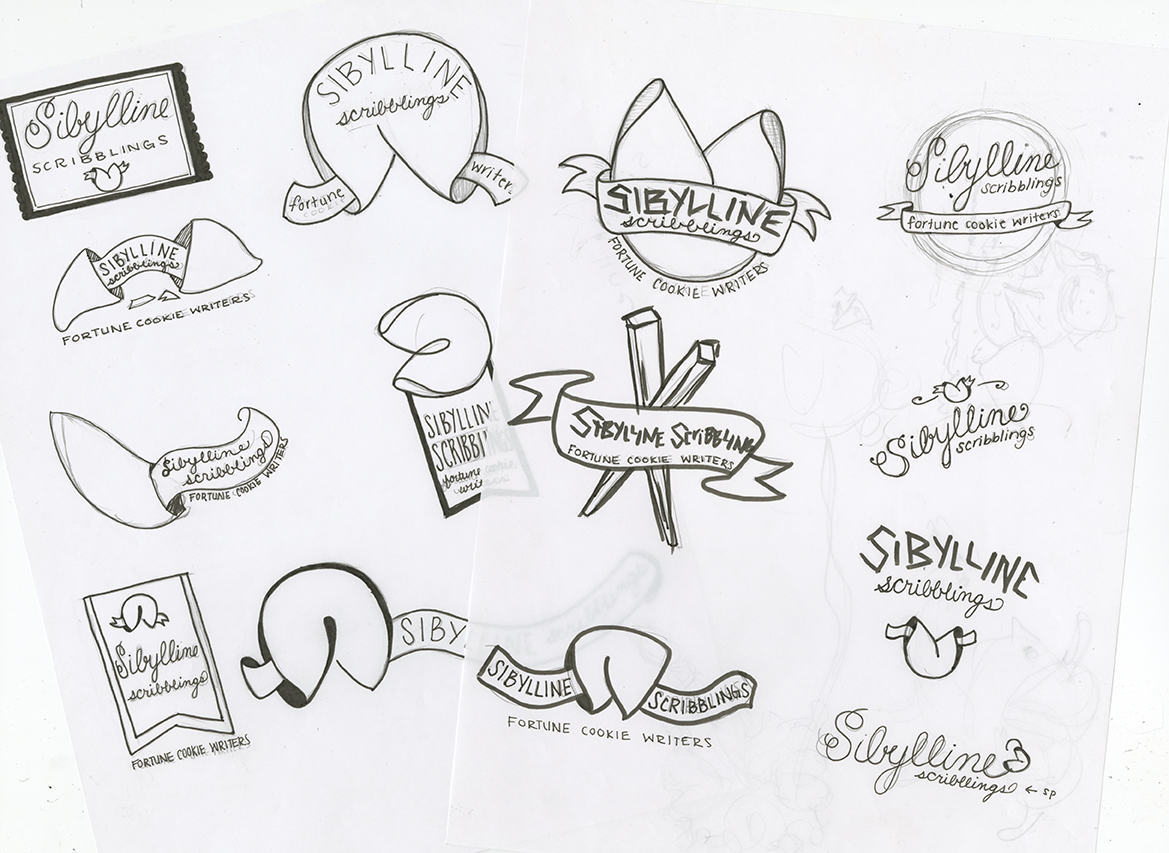 Sibylline
SCRIBBLINGS
SIBYLLINE
scribblings
fortune
COOKIE
writers
SIBYLLINE
scribblings
FORTUNE COOKIE WRITERS
Sibylline
scribblings
fortune cookie writers
SIBYLLINE
scribblings
FORTUNE COOKIE WRITERS
SIBYLLINE
SCRIBBLINGS
fortune cookie
writers
SIBYLLINE SCRIBBLINGS
FORTUNE COOKIE WRITERS
Sibylline
scribblings
Sibylline
scribblings
FORTUNE COOKIE WRITERS
SIBYLLINE
scribblings
Sibylline
scribblings
FORTUNE COOKIE WRITERS
SIBY
SIBYLLINE SCRIBBLINGS
FORTUNE COOKIE WRITERS
Sibylline
scribblings ← SP